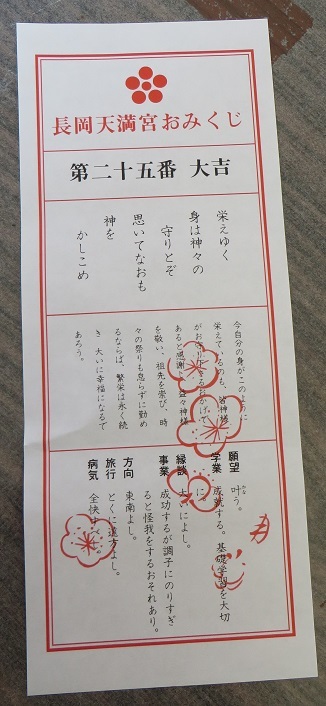 長岡天満宮おみくじ
第二十五番 大吉
栄えゆく
身は神々の
守りとぞ
思いてなおも
神を
かしこめ
今自分の身がこのように
栄えているのも、皆神様
がお守り下さるおかげで
あると感謝し、益々神様
を敬い、祖先を崇び、時
々の祭りも怠らずに勤め
るならば、繁栄は永く続
き、大いに幸福になるで
あろう。
願望 叶う。
学業 成就する。基礎学習を大切
に。
縁談 大いによし。
事業 成功するが調子にのりすぎ
ると怪我をするおそれあり。
方向 東南よし。
旅行 とくに遠方よし。
病気 全快す。